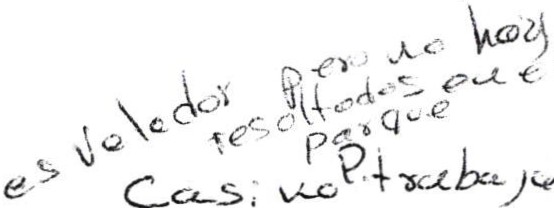 es velador pero no hay
resoltados en e
parque
Casi no trabaja